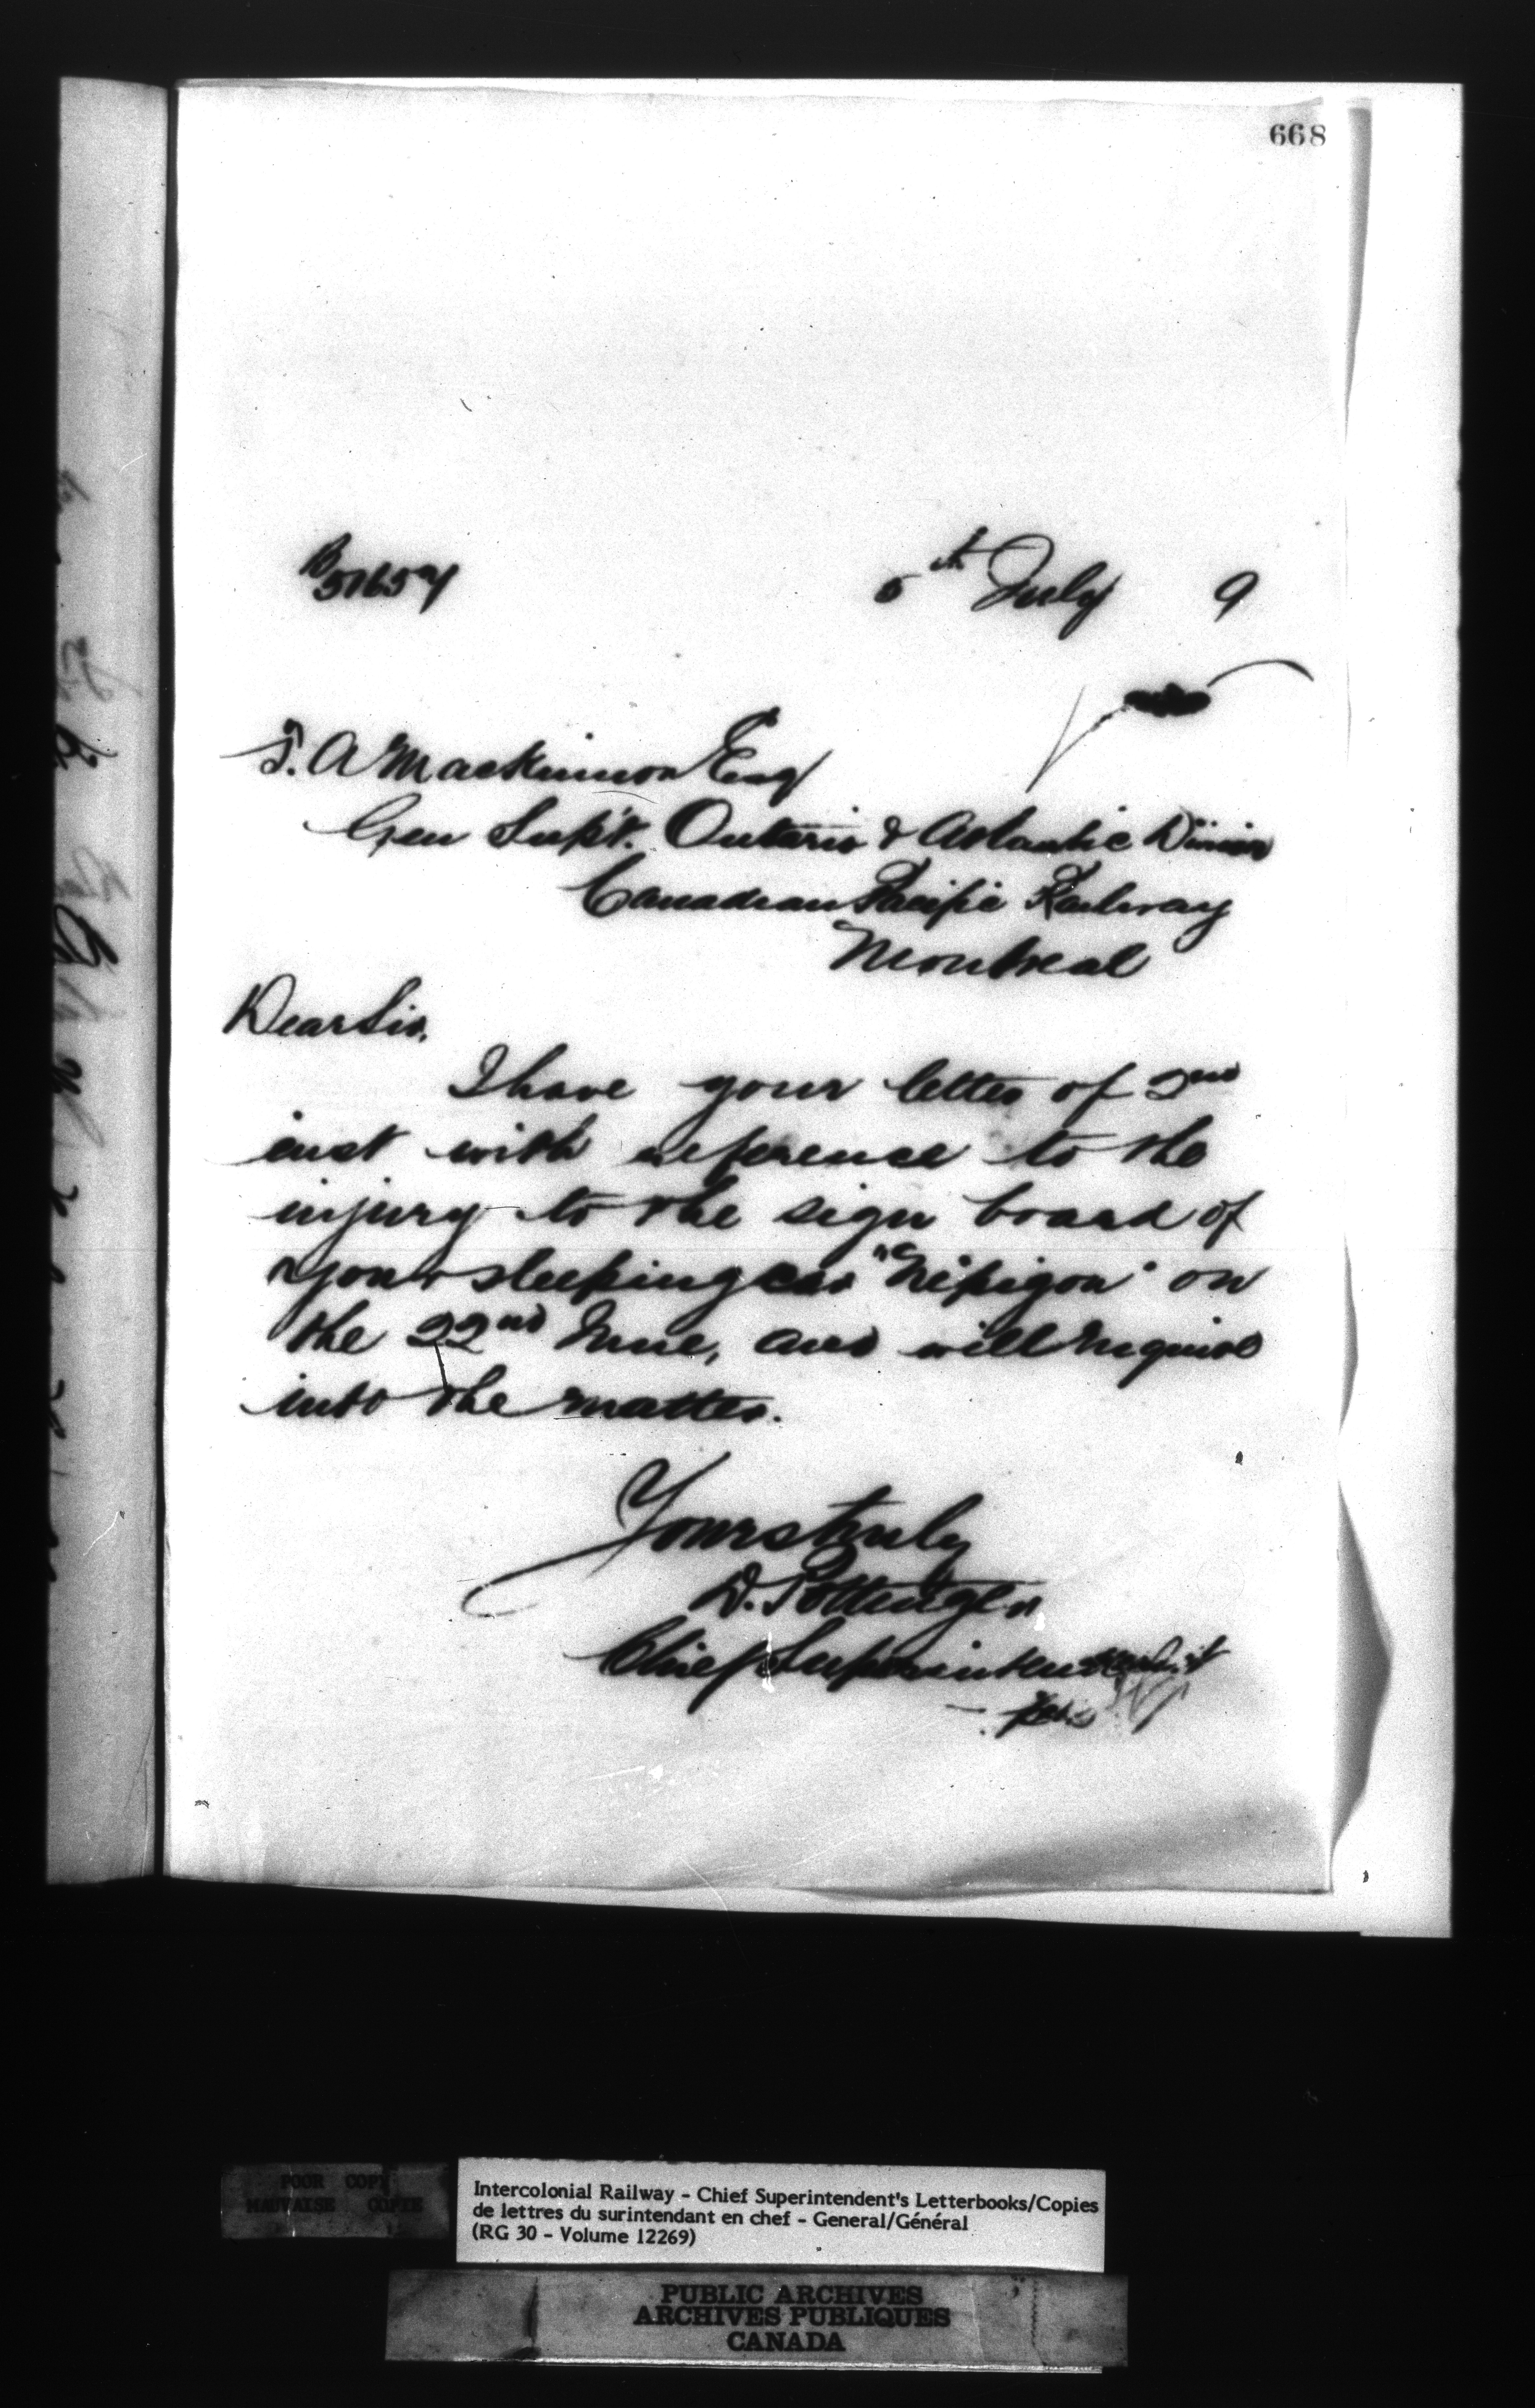 668
B51657
5th July 9
T. A Mackinnon Esq
Gen Supt. Ontario & Atlantic Divion
Canadian Pacific Railway
Montreal
Dear Sir.
I have your letter of 2nd
inst with reference to the
injury to the sign board of
your sleeping car "Nepigon" on
the 22nd June, and will enquire
into the matter.
Yours truly
D. Pottinger
Chief Superintendent
POOR COPY
MAUVAISE COPIE
Intercolonial Railway - Chief Superintendent's Letterbooks/Copies
de lettres du surintendant en chef - General/Général
(RG 30 - Volume 12269)
PUBLIC ARCHIVES
ARCHIVES PUBLIQUES
CANADA